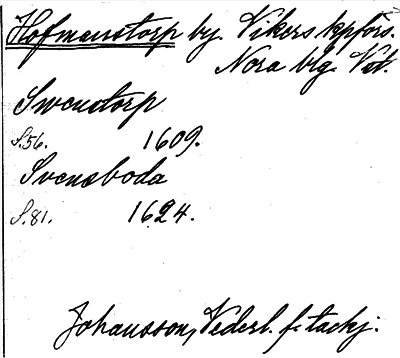 Hofmanstorp by. Vikers kpförs.
Nora blg. Vst.
Swenstorp
S.56. 1609.
Svensboda
S.81. 1624.
Johansson, Vederl. f. tackj.